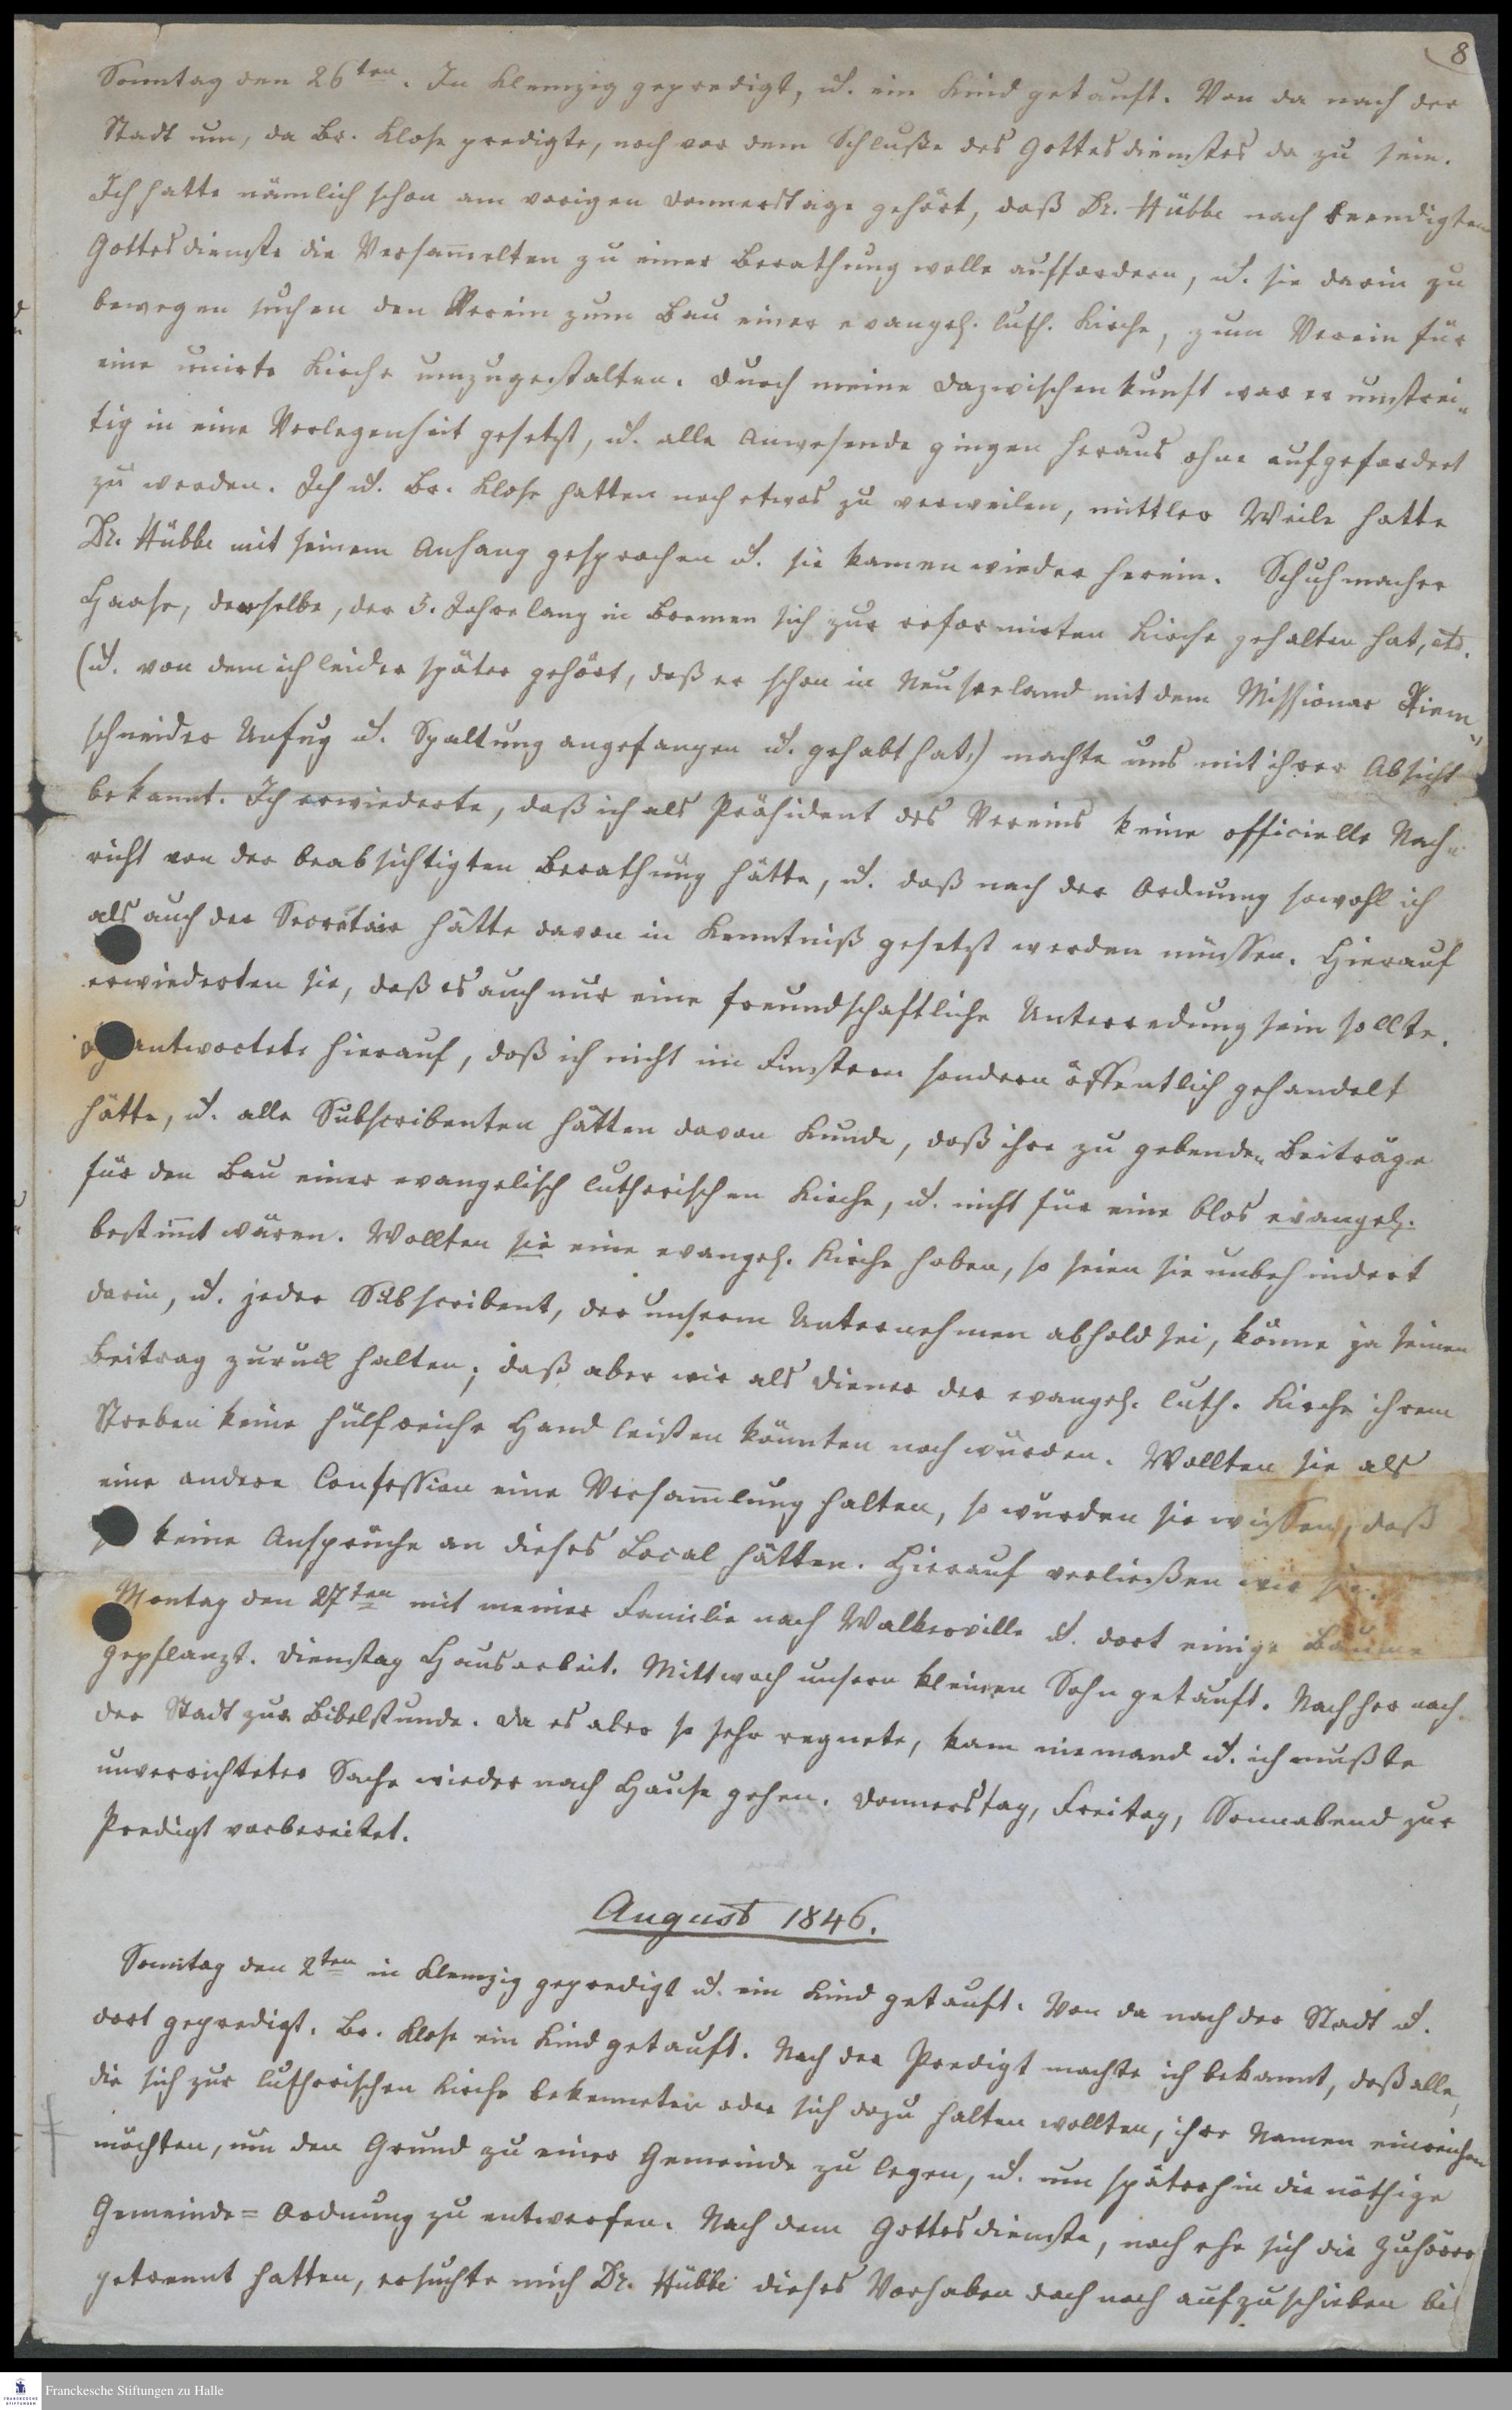 8
Sonntag den 26ten. In Klemzig gepredigt, u. ein Kind getauft. Von da nach der
Stadt um, da Br. Klose predigte, noch vor dem Schluße des Gottesdienstes da zu sein.
Ich hatte nämlich schon am vorigen Donnerstage gehört, daß Dr. Hübbe nach beendigten
Gottesdienste die Versam̄elten zu einer Berathung wolle auffordern, u. sie darin zu
bewegen suchen den Verein zum Bau einer evangel. luth. Kirche, zum Verein für
eine unirte Kirche umzugestalten. Durch meine Dazwischenkunft war er unstrei„
tig in eine Verlegenheit gesetzt, u. alle Anwesende gingen heraus ohne aufgefordert
zu werden. Ich u. Br. Klose hatten noch etwas zu verweilen, mittler Weile hatte
Dr. Hübbe mit seinem Anhang gesprochen u. sie kamen wieder herein. Schuhmacher
Haase, derselbe, der 5. Jahre lang in Bremen sich zur reformirten Kirche gehalten hat, etc.
(u. von dem ich leider später gehört, daß er schon in Neuseeland mit dem Missionar Riem„
schneider Unfug u. Spaltung angefangen u. gehabt hat,) machte uns mit ihrer Absicht
bekannt. Ich erwiederte, daß ich als Präsident des Vereins keine officielle Nach„
richt von der beabsichtigten Berathung hätte, u. daß nach der Ordnung sowohl ich
als auch der Secretair hätte davon in Kenntniß gesetzt werden müssen. Hierauf
erwiederten sie, daß es auch nur eine freundschaftliche Unterredung sein sollte.
antwortete hierauf, daß ich nicht im Finstern sondern öffentlich gehandelt
hätte, u. alle Subscribenten hätten davon Kunde, daß ihre zu gebenden Beiträge
für den Bau einer evangelisch lutherischen Kirche, u. nicht für eine blos evangel.
bestim̄t wären. Wollten sie eine evangel. Kirche haben, so seien sie unbehindert
darin, u. jeder Subscribent, der unserm Unternehmen abhold sei, könne ja seinen
Beitrag zurück halten; daß aber wir als Diener der evangel. luth. Kirche ihrem
Streben keine hülfreiche Hand leisten könnten noch würden. Wollten sie als
eine andere Confession eine Versam̄lung halten, so würden sie wissen, daß
keine Ansprüche an dieses Local hätten. Hierauf verließen wir sie.
Montag den 27ten mit meiner Familie nach Walkerville u. dort einige Bäume
gepflanzt. Dienstag Hausarbeit. Mittwoch unsern kleinen Sohn getauft. Nachher nach
der Stadt zur Bibelstunde. Da es aber so sehr regnete, kam niemand u. ich mußte
unverrichteter Sache wieder nach Hause gehen. Donnerstag, Freitag, Sonnabend zur
Predigt vorbereitet.
August 1846.
Sonntag den 2ten in Klemzig gepredigt u. ein Kind getauft. Von da nach der Stadt u.
dort gepredigt. Br. Klose ein Kind getauft. Nach der Predigt machte ich bekannt, daß alle,
die sich zur lutherischen Kirche bekenneten oder sich dazu halten wollten, ihre Namen einreichen
möchten, um den Grund zu einer Gemeinde zu legen, u. um späterhin die nöthige
Gemeinde=Ordnung zu entwerfen. Nach dem Gottesdienste, noch ehe sich die Zuhörer
getrennt hatten, ersuchte mich Dr. Hübbe dieses Vorhaben doch noch aufzuschieben bis
Franckesche Stiftungen zu Halle